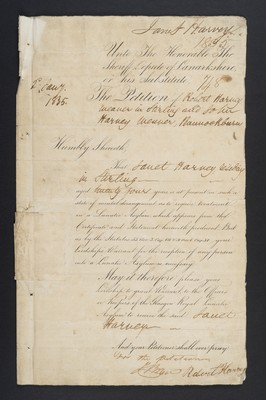 Janet Harvey
Unto The Honorable The
Sheriff Depute of Lanarkshire,
or his Substitute
2d Jany.
1835.
The Petition of Robert Harvey
weaver in Stirling and
Harvey weaver Bannockburn
Humbly Sheweth
That Janet Harvey residing
in Stirling
aged twenty years is at present in such a
state of mental derangement as to require treatment
in a Lunatic Asylum which appears from the
Certificate and Statement herewith produced. But
as by the Statutes
Lordships Warrant for the reception of any person
into a Lunatic Asylum is necessary
May it therefore please your
Lordship to grant Warrant to the Officers
or Keepers of the Glasgow Royal Lunatic
Asylum to receive the said Janet
Harvey
And your Petitioners shall ever pray
for the petitioners
Robert Harvey